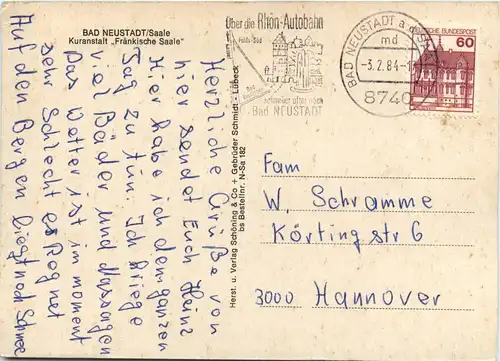 BAD NEUSTADT/Saale
Kuranstalt „Fränkische Saale"
Herzliche Grüße von
hier sendet Euch Heinz
Hier habe ich den ganzen
Tag zu tun. Ich kriege
viel Bäder und Massagen
Das Wetter ist in moment
sehr Schlecht es Regnet
Auf den Bergen liegt noch Schnee
Herst. u. Verlag Schöning & Co + Gebrüder Schmidt - Lübeck
bs Bestellnr. N-Sa 182
Über die Rhön-Autobahn
schneller oder nach
Bad NEUSTADT
BAD NEUSTADT a.d. SAALE
md
-3.2.84-1
8740
DEUTSCHE BUNDESPOST
60
Fam
W. Schramme
Körtingstr 6
3000 Hannover